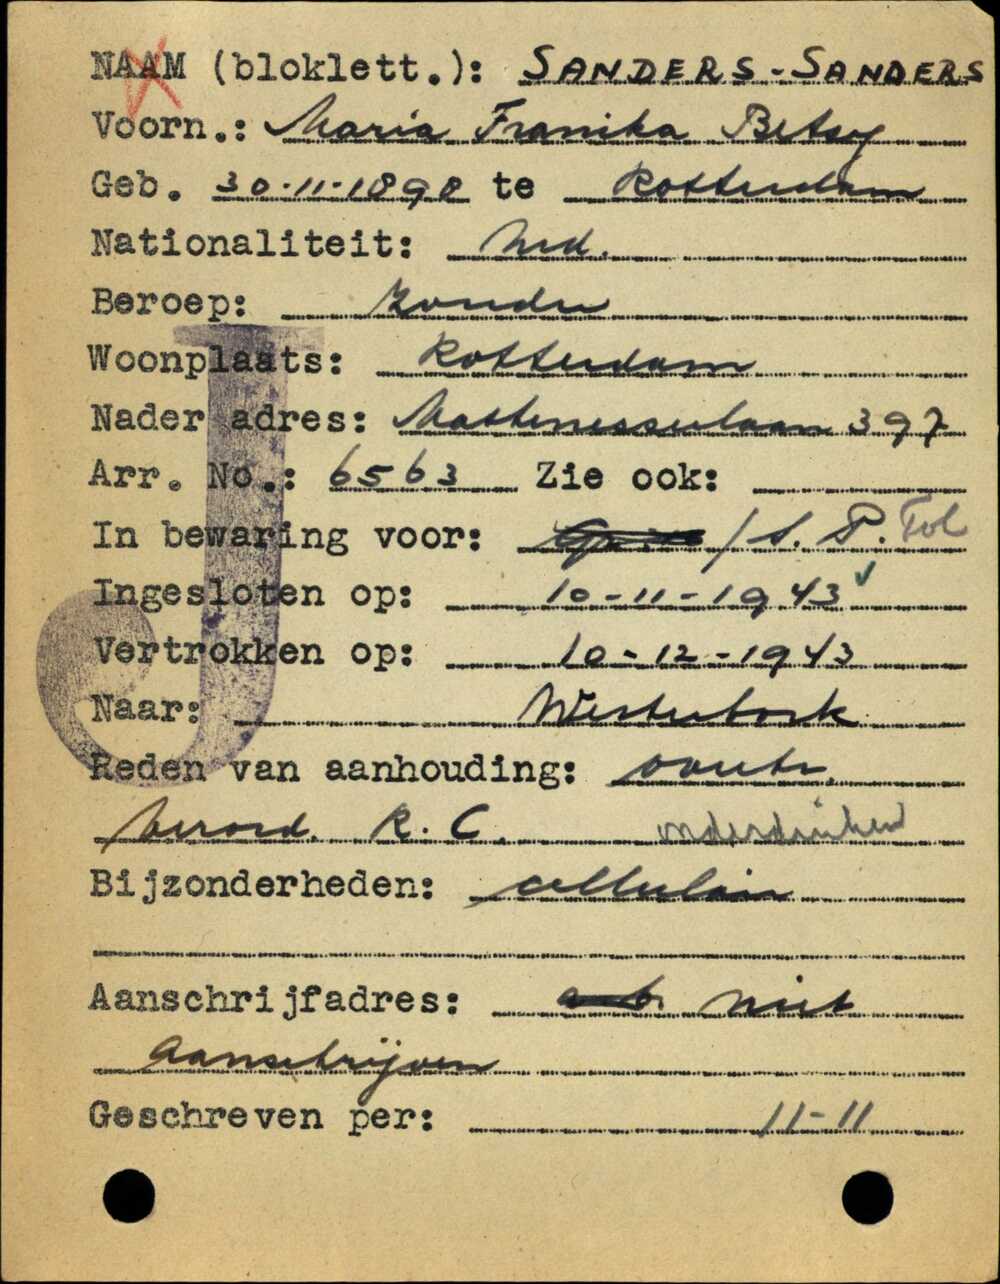 NAAM (bloklett.): SANDERS-SANDERS
Voorn.: Maria Franika Betsy
Geb. 30-11-1890 te Rotterdam
Nationaliteit: Ned.
Beroep: zonder
Woonplaats: Rotterdam
Nader adres: Mathenesserlaan 397
Arr. No.: 6563 Zie ook:
In bewaring voor: / S. P.
Ingesloten op: 10-11-1943
Vertrokken op: 10-12-1943
Naar: Westerbork
Reden van aanhouding: overtr.
verord. R. C. onderduiken
Bijzonderheden: cellulair
Aanschrijfadres: niet
aanschrijven
Geschreven per: 11-11
J